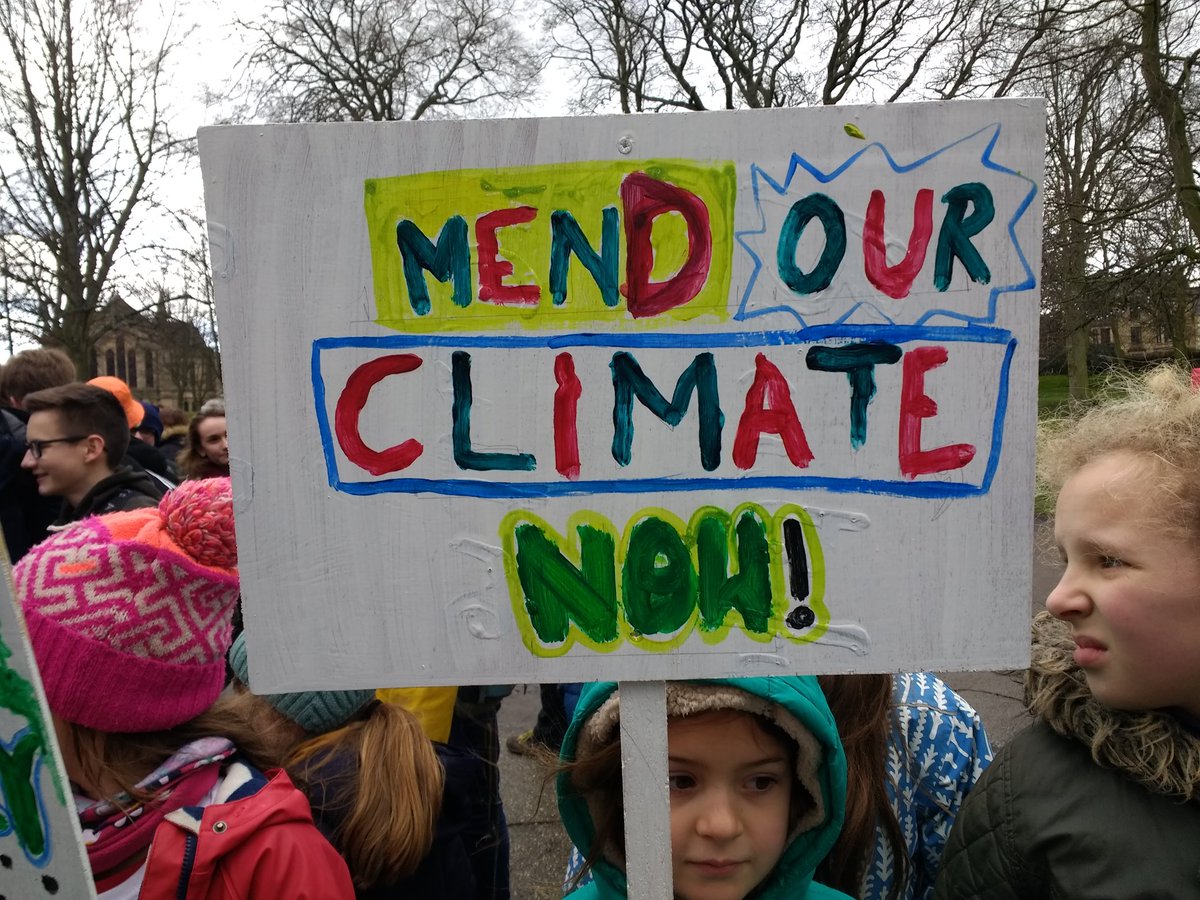 MEND OUR
CLIMATE
NOW!